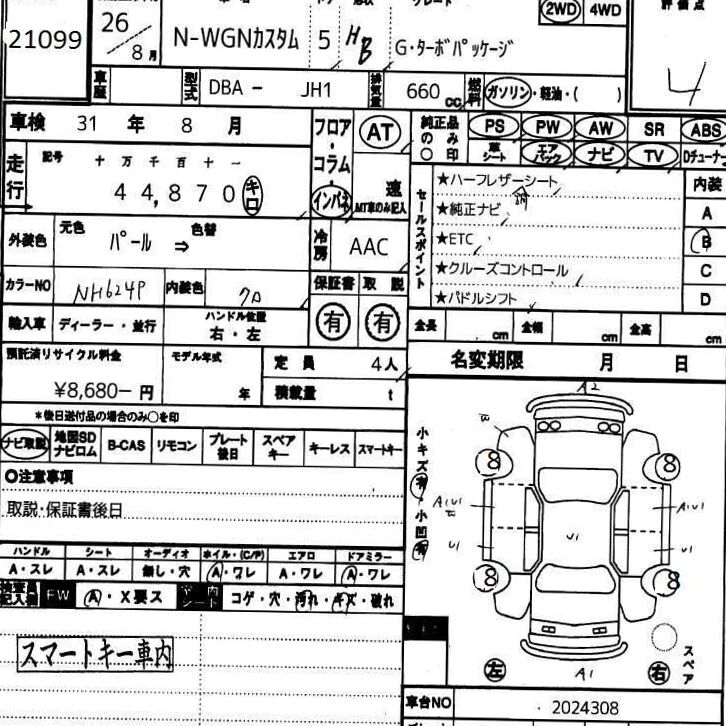 21099
26/8月
N-WGNカスタム
5
HB
G・ターボパッケージ
2WD 4WD
評価点
4
車歴
型式 DBA － JH1
排気量 660 cc
燃料 ガソリン・軽油・( )
車検 31 年 8 月
フロア・コラム・インパネ
AT
速
MT車のみ記入
純正品のみ○印
PS PW AW SR ABS
革シート エアバック ナビ TV Dチューナー
走行
記号 十 万 千 百 十 一
44,870 キロ
セールスポイント
★ハーフレザーシート
★純正ナビ
★ETC
★クルーズコントロール
★パドルシフト
内装
A
B
C
D
外装色 元色 パール ⇒ 色替
冷房 AAC
カラーNO NH624P 内装色 クロ
保証書 取説
有 有
輸入車 ディーラー・並行
ハンドル位置
右・左
全長 cm 全幅 cm 全高 cm
預託済リサイクル料金
¥8,680－円
モデル年式
年
定員 4人
積載量 t
名変期限 月 日
*後日送付品の場合のみ○を印
ナビ取説 地図SDナビロム B-CAS リモコン プレート後日 スペアキー キーレス スマートキー
○注意事項
取説・保証書後日
ハンドル シート オーディオ ホイル・(C/P) エアロ ドアミラー
A・スレ A・スレ 無し・穴 A・ワレ A・ワレ A・ワレ
検査員記入欄 FW A・X要ス 内シート コゲ・穴・汚れ・キズ・破れ
スマートキー車内
小キズ有・小凹有
A2
B
8 8
A1U1
A1U1
U1 U1 U1
8 8
左 A1 右
スペア
車台NO 2024308